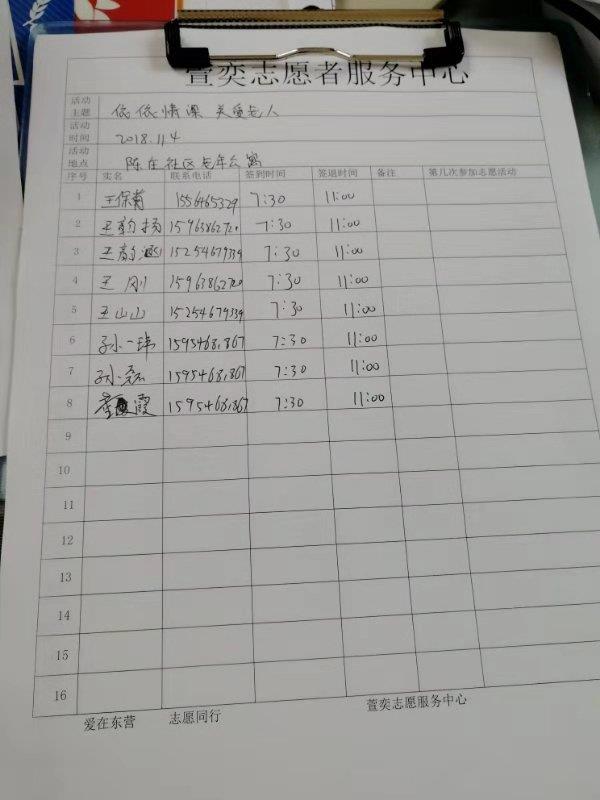 萱奕志愿者服务中心
活动主题 依依情深 关爱老人
活动时间 2018.11.4
活动地点 陈庄社区老年公寓
序号 实名 联系电话 签到时间 签退时间 备注 第几次参加志愿活动
1 王保菊 155465329 7:30 11:00
2 王韵扬 15963862720 7:30 11:00
3 王韵涵 15254679339 7:30 11:00
4 王刚 15963862720 7:30 11:00
5 王山山 15254679339 7:30 11:00
6 孙一玮 1595468,867 7:30 11:00
7 孙磊 1595468,867 7:30 11:00
8 霞 1595468,867 7:30 11:00
9
10
11
12
13
14
15
16
爱在东营 志愿同行 萱奕志愿服务中心